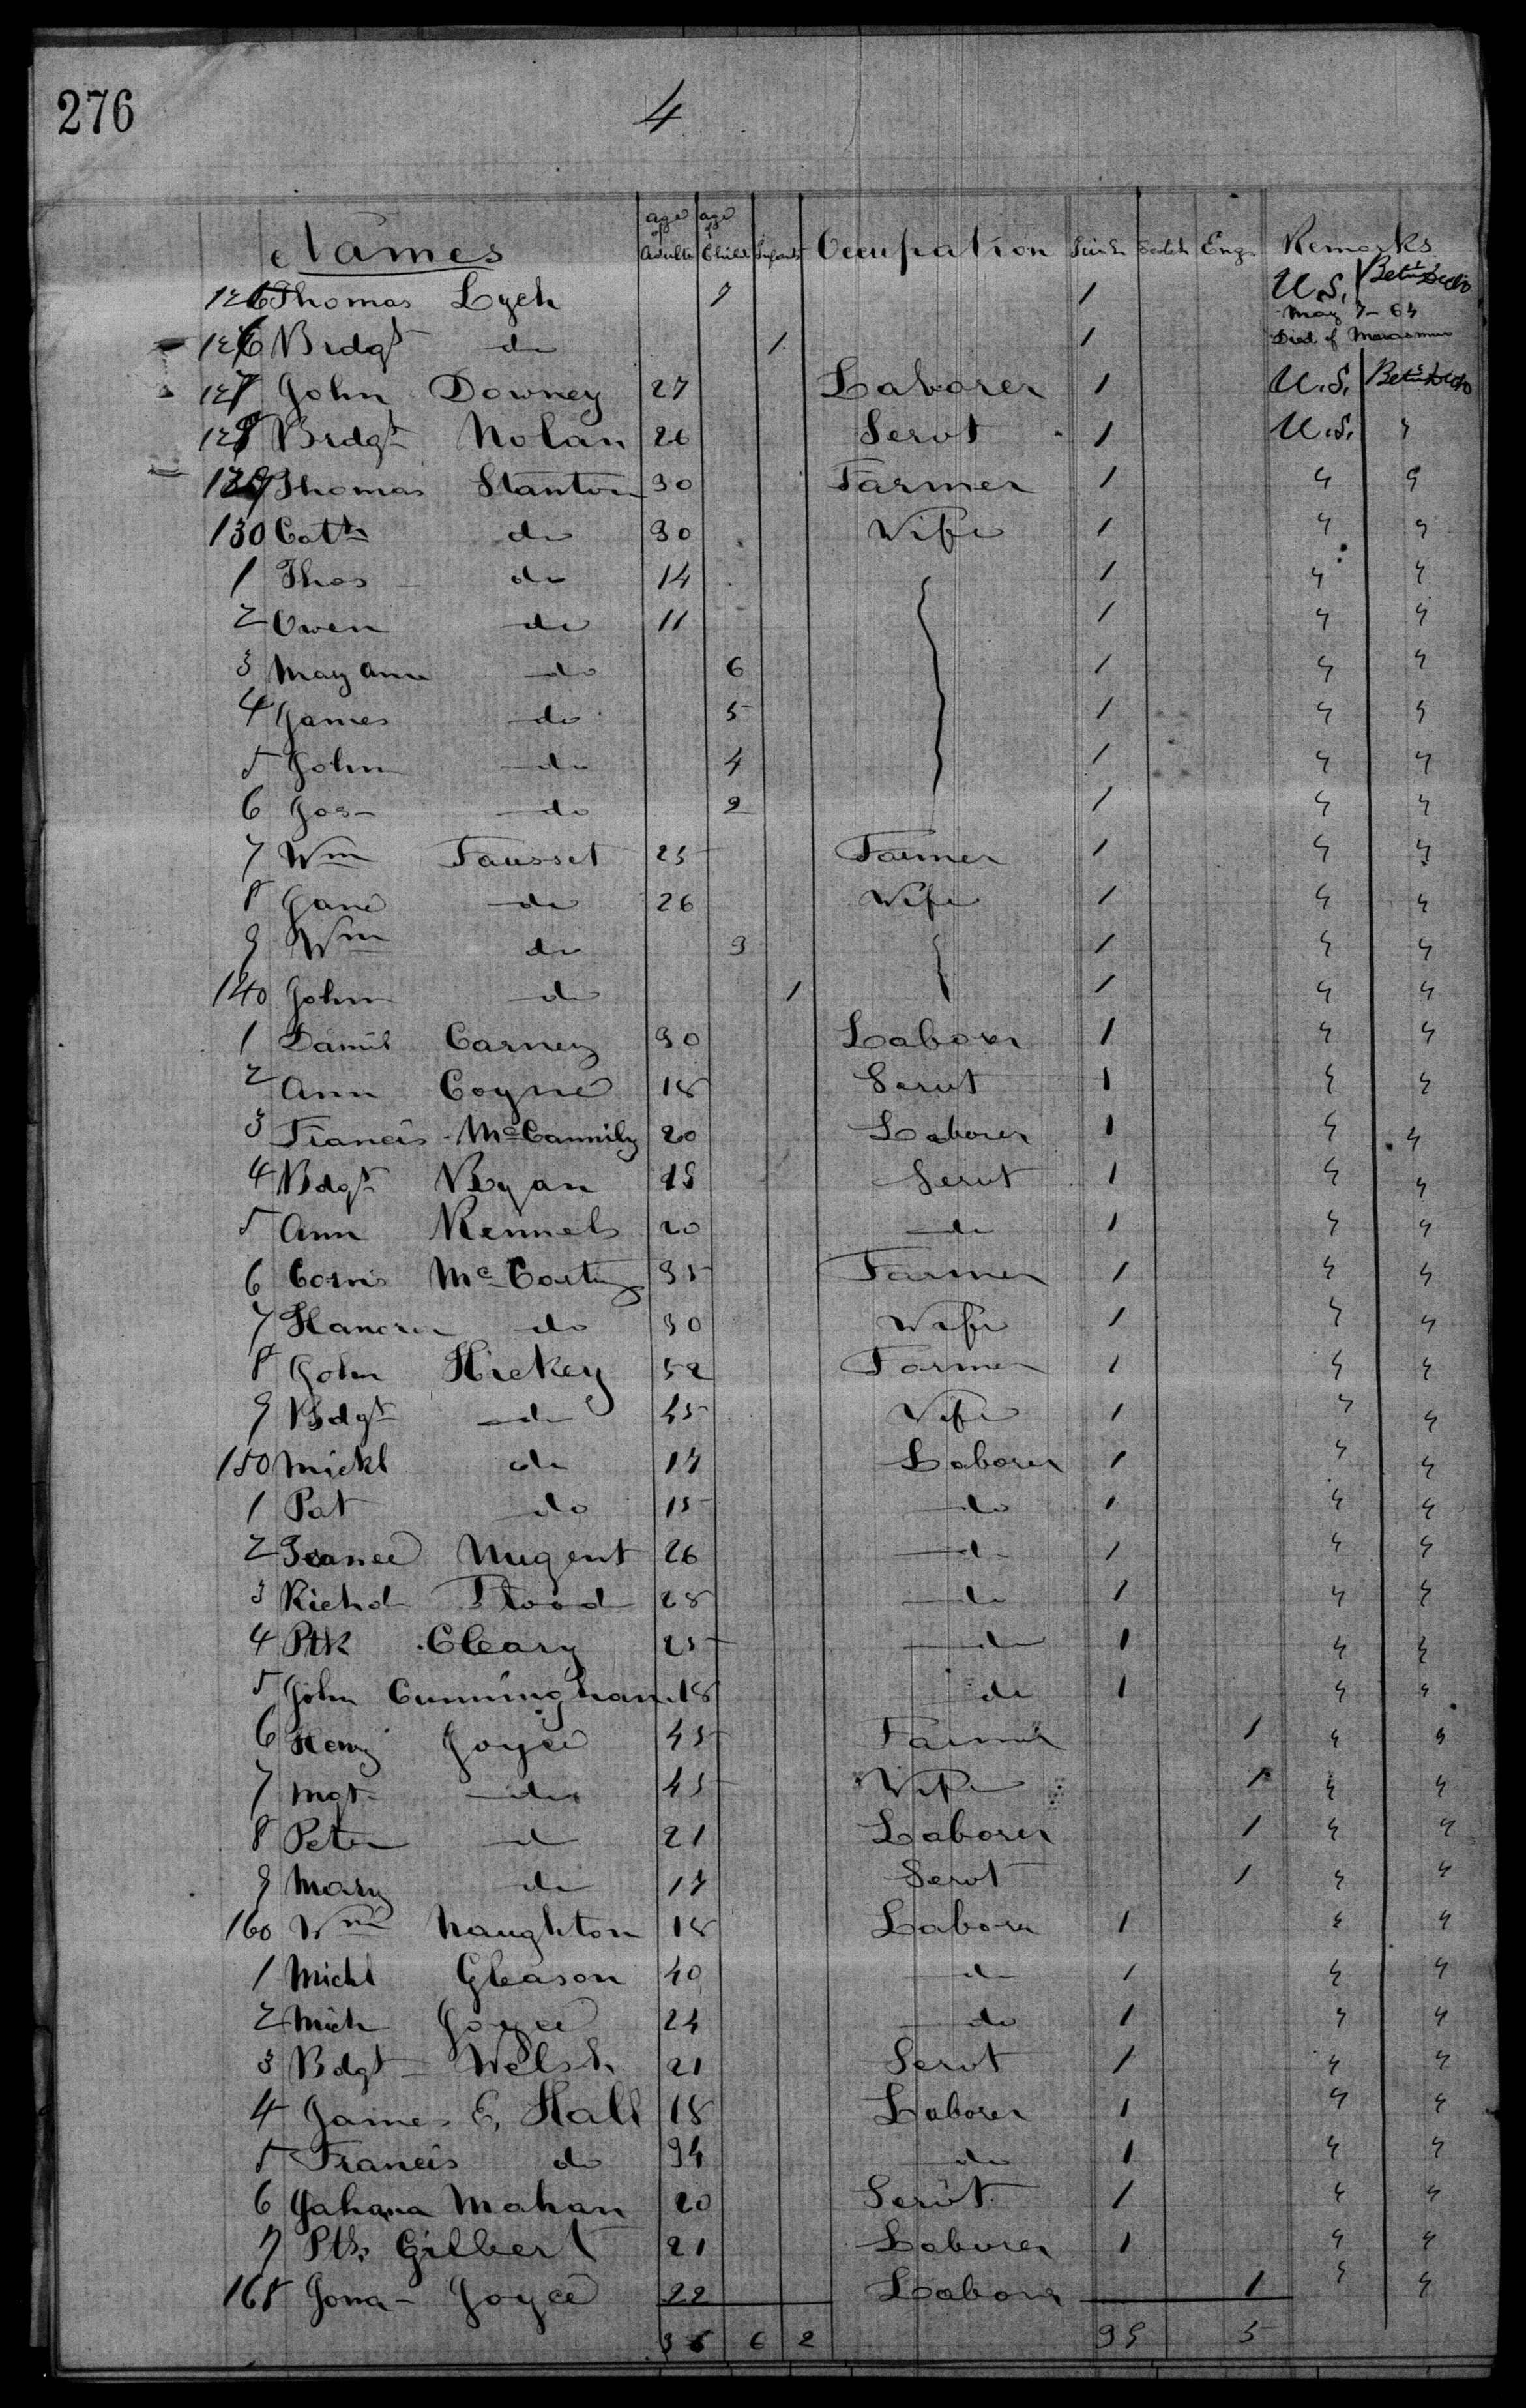 276
4
Names age of Adults age of Child Infants Occupation Irish Scotch Eng. Remarks
125 Thomas Lych 1 U.S. Betn Decks
126 Bridgt do 1 1 May 7 - 64 Died of Marasmus
127 John Downey 27 Laborer 1 U.S. Betn Decks
128 Bridgt Nolan 26 Servt 1 U.S. "
129 Thomas Stanton 30 Farmer 1 " "
130 Cath do 30 Wife 1 " "
1 Thos do 14 1 " "
2 Owen do 11 1 " "
3 Mary Ann do 6 1 " "
4 James do 5 1 " "
5 John do 4 1 " "
6 Jos do 2 1 " "
7 Wm Fausset 25 Farmer 1 " "
8 Jane do 26 Wife 1 " "
9 Wm do 3 1 " "
140 John do 1 1 " "
1 Daniel Carney 30 Laborer 1 " "
2 Ann Coyne 18 Servt 1 " "
3 Francis 20 Laborer 1 " "
4 Bdgt Ryan 18 Servt 1 " "
5 Ann 20 do 1 " "
6 Corns McCarty 35 Farmer 1 " "
7 Hanora do 30 Wife 1 " "
8 John Hickey 52 Farmer 1 " "
9 Bdgt do 45 Wife 1 " "
150 Michl do 17 Laborer 1 " "
1 Pat do 15 do 1 " "
2 Nugent 26 do 1 " "
3 Richd Flood 28 do 1 " "
4 Ptk Cleary 25 do 1 " "
5 John Cunningham 18 do 1 " "
6 Henry Joyce 45 Farmer 1 " "
7 Mgt do 45 Wife 1 " "
8 Peter do 21 Laborer 1 " "
9 Mary do 17 Servt 1 " "
160 Wm Naughton 18 Laborer 1 " "
1 Michl Gleason 40 do 1 " "
2 Mich Joyce 24 do 1 " "
3 Bdgt Welsh 21 Servt 1 " "
4 James E. Hall 18 Laborer 1 " "
5 Francis do 34 do 1 " "
6 Johana Mahan 20 Servt 1 " "
7 Ptk Gilbert 21 Laborer 1 " "
168 Jona Joyce 22 Laborer 1 " "
36 6 2 39 5